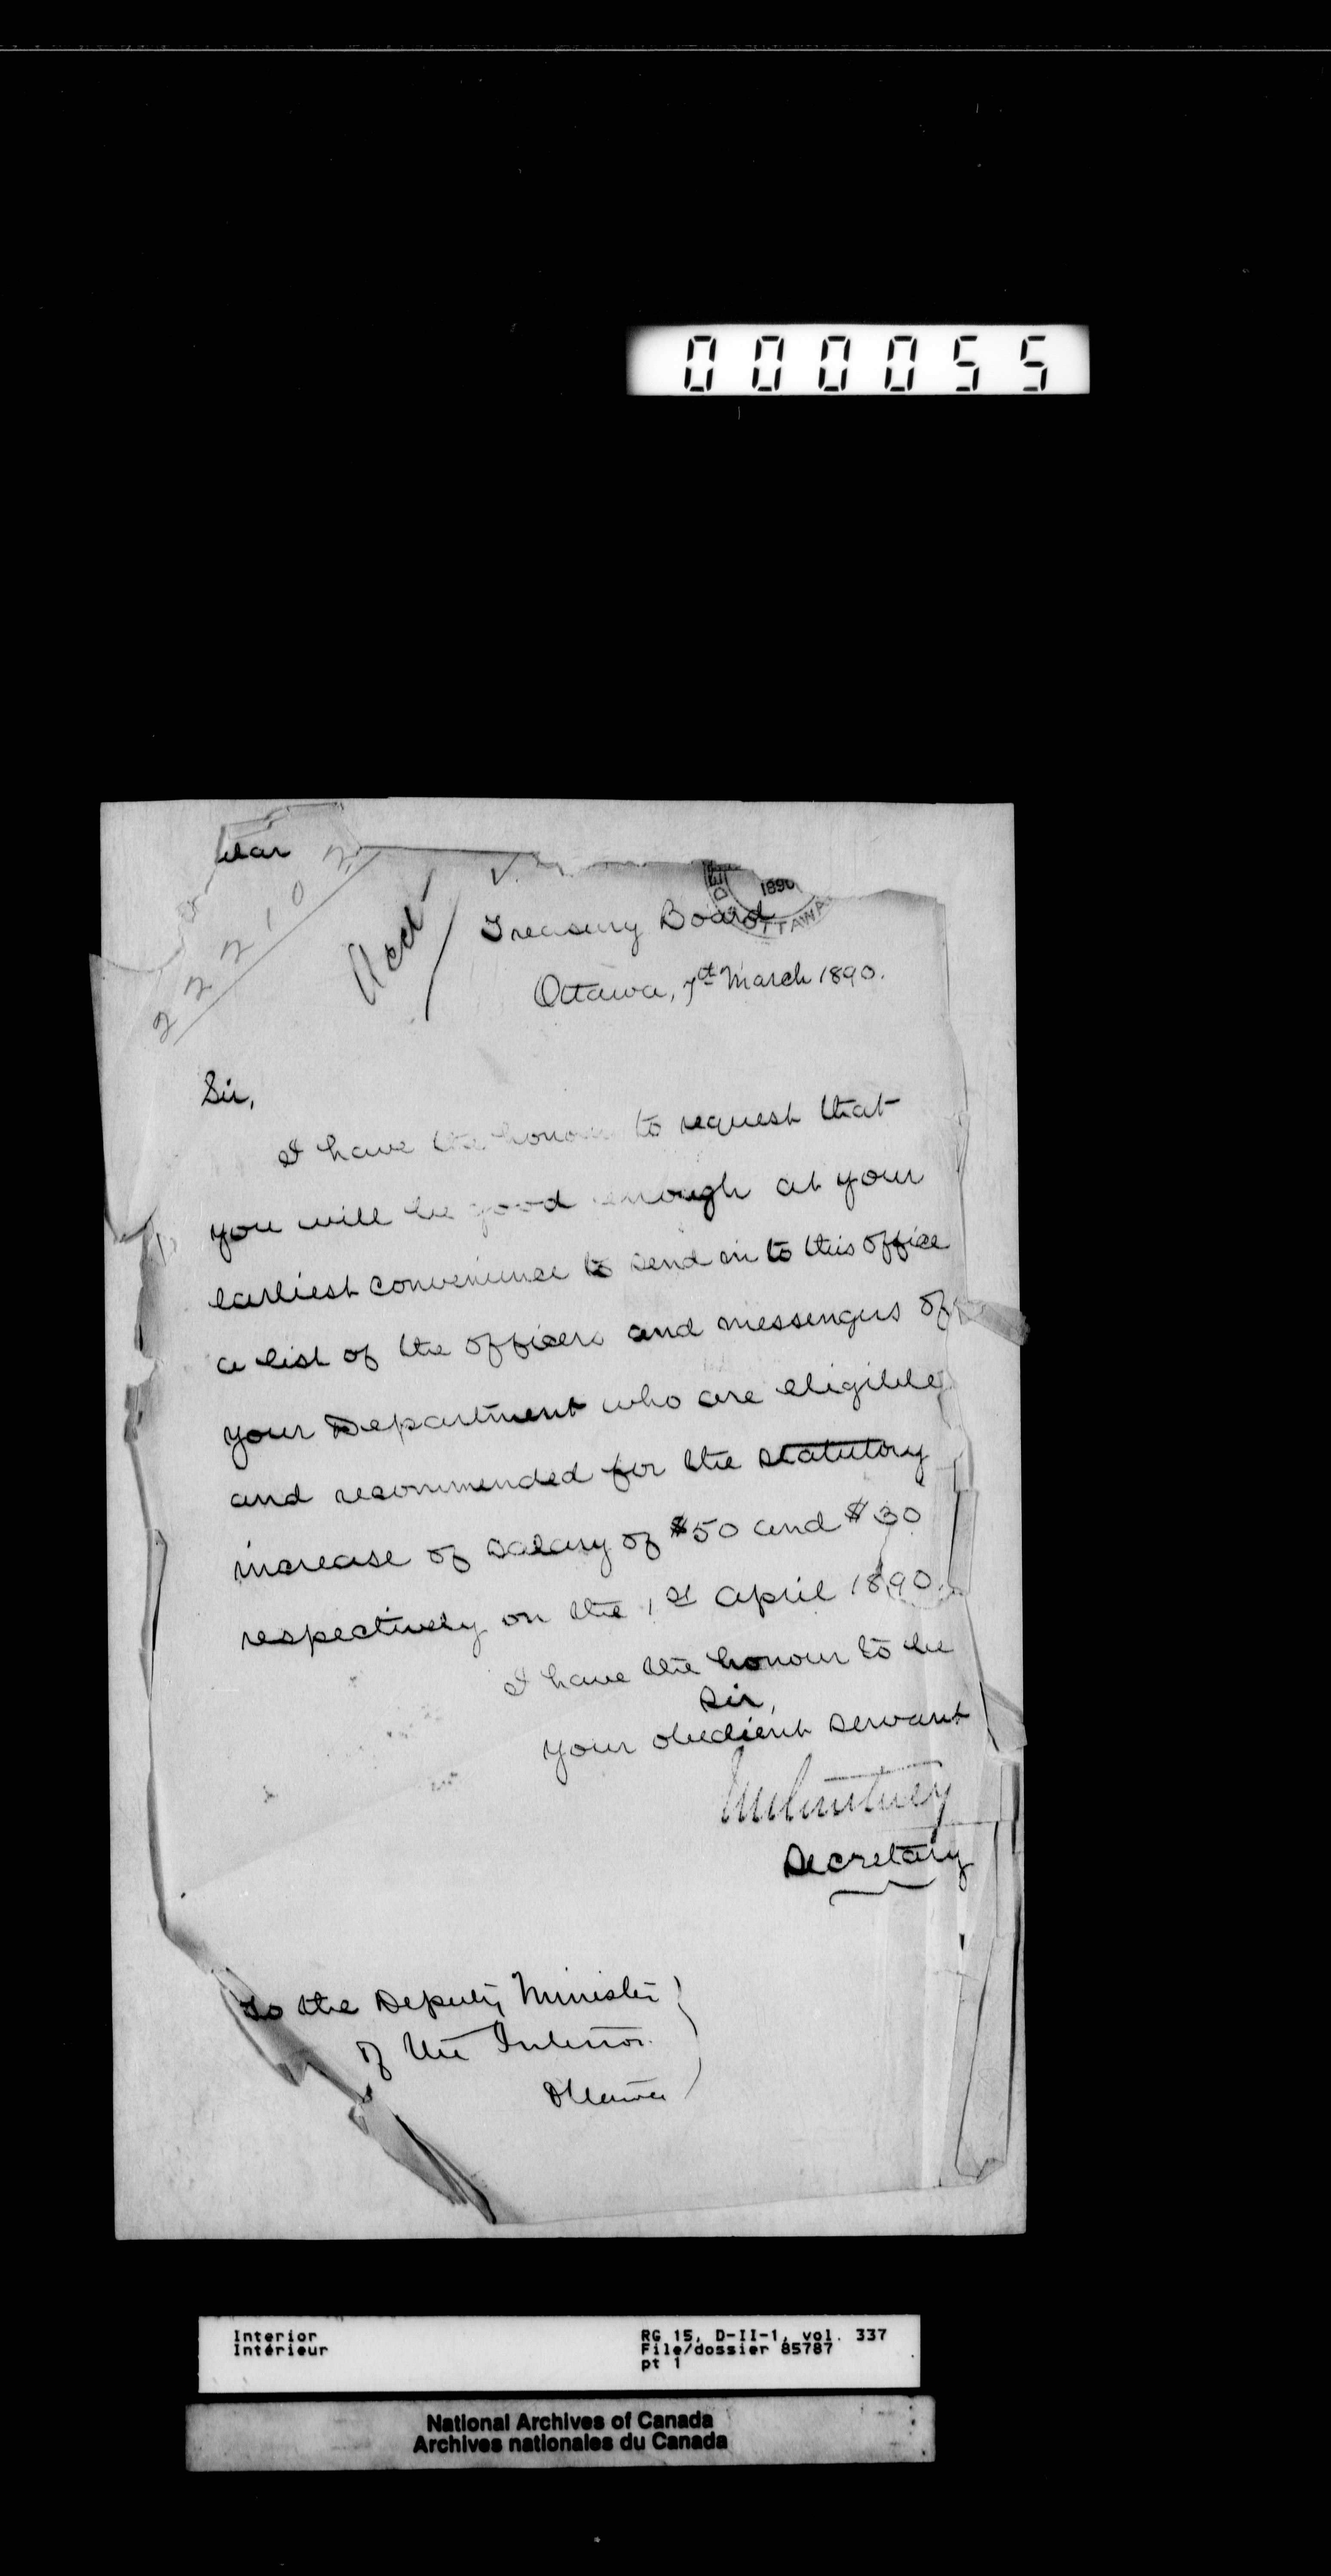 000055
222102
Ackd
1890
OTTAWA
Treasury Board
Ottawa, 7th March 1890.
Sir,
I have the honour to request that
you will be good enough at your
earliest convenience to send in to this office
a list of the officers and messengers of
your Department who are eligible
and recommended for the statutory
increase of salary of $50 and $30
respectively on the 1st April 1890.
I have the honour to be
Sir,
your obedient servant
Secretary
To the Deputy Minister
of the Interior.
Ottawa
Interior
Intérieur
RG 15, D-II-1, vol. 337
File/dossier 85787
pt 1
National Archives of Canada
Archives nationales du Canada